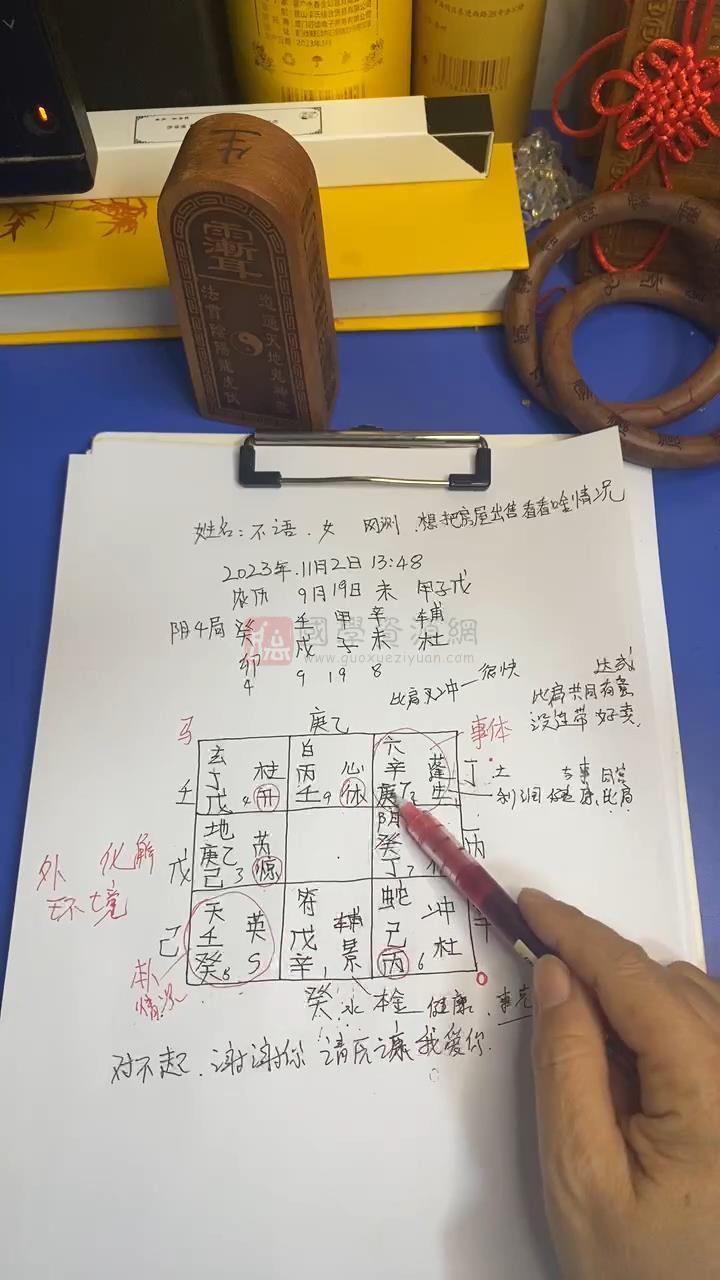 2023年3月
生
道通天地鬼神惊
法贯阴阳龙虎伏
姓名：不语、女 网测 想把房屋出售看看啥情况
2023年11月2日 13:48
农历 9月19日未 甲子戊
阴4局 癸 壬 甲 辛 辅
卯 戌 子 未 杜
4 9 19 8
國學資源網
www.guoxueziyuan.com
比肩又冲一很快
比肩共同有意
没连带 好卖
马 庚乙 事体
玄 白 六
丁 柱 丙 心 辛 蓬
壬 戊 4 开 壬 9 休 庚 2 生 丁 土
利润 健康、比肩
地 阴
庚乙 芮 癸
戊 己 3 惊 丁 7 丙
外 化解
环境
天 符 蛇
壬 英 戊 辅 己 冲
己 癸 8 辛 1 景 丙 6 杜
情况
癸 水 金 健康、
对不起、谢谢你 请原谅 我爱你